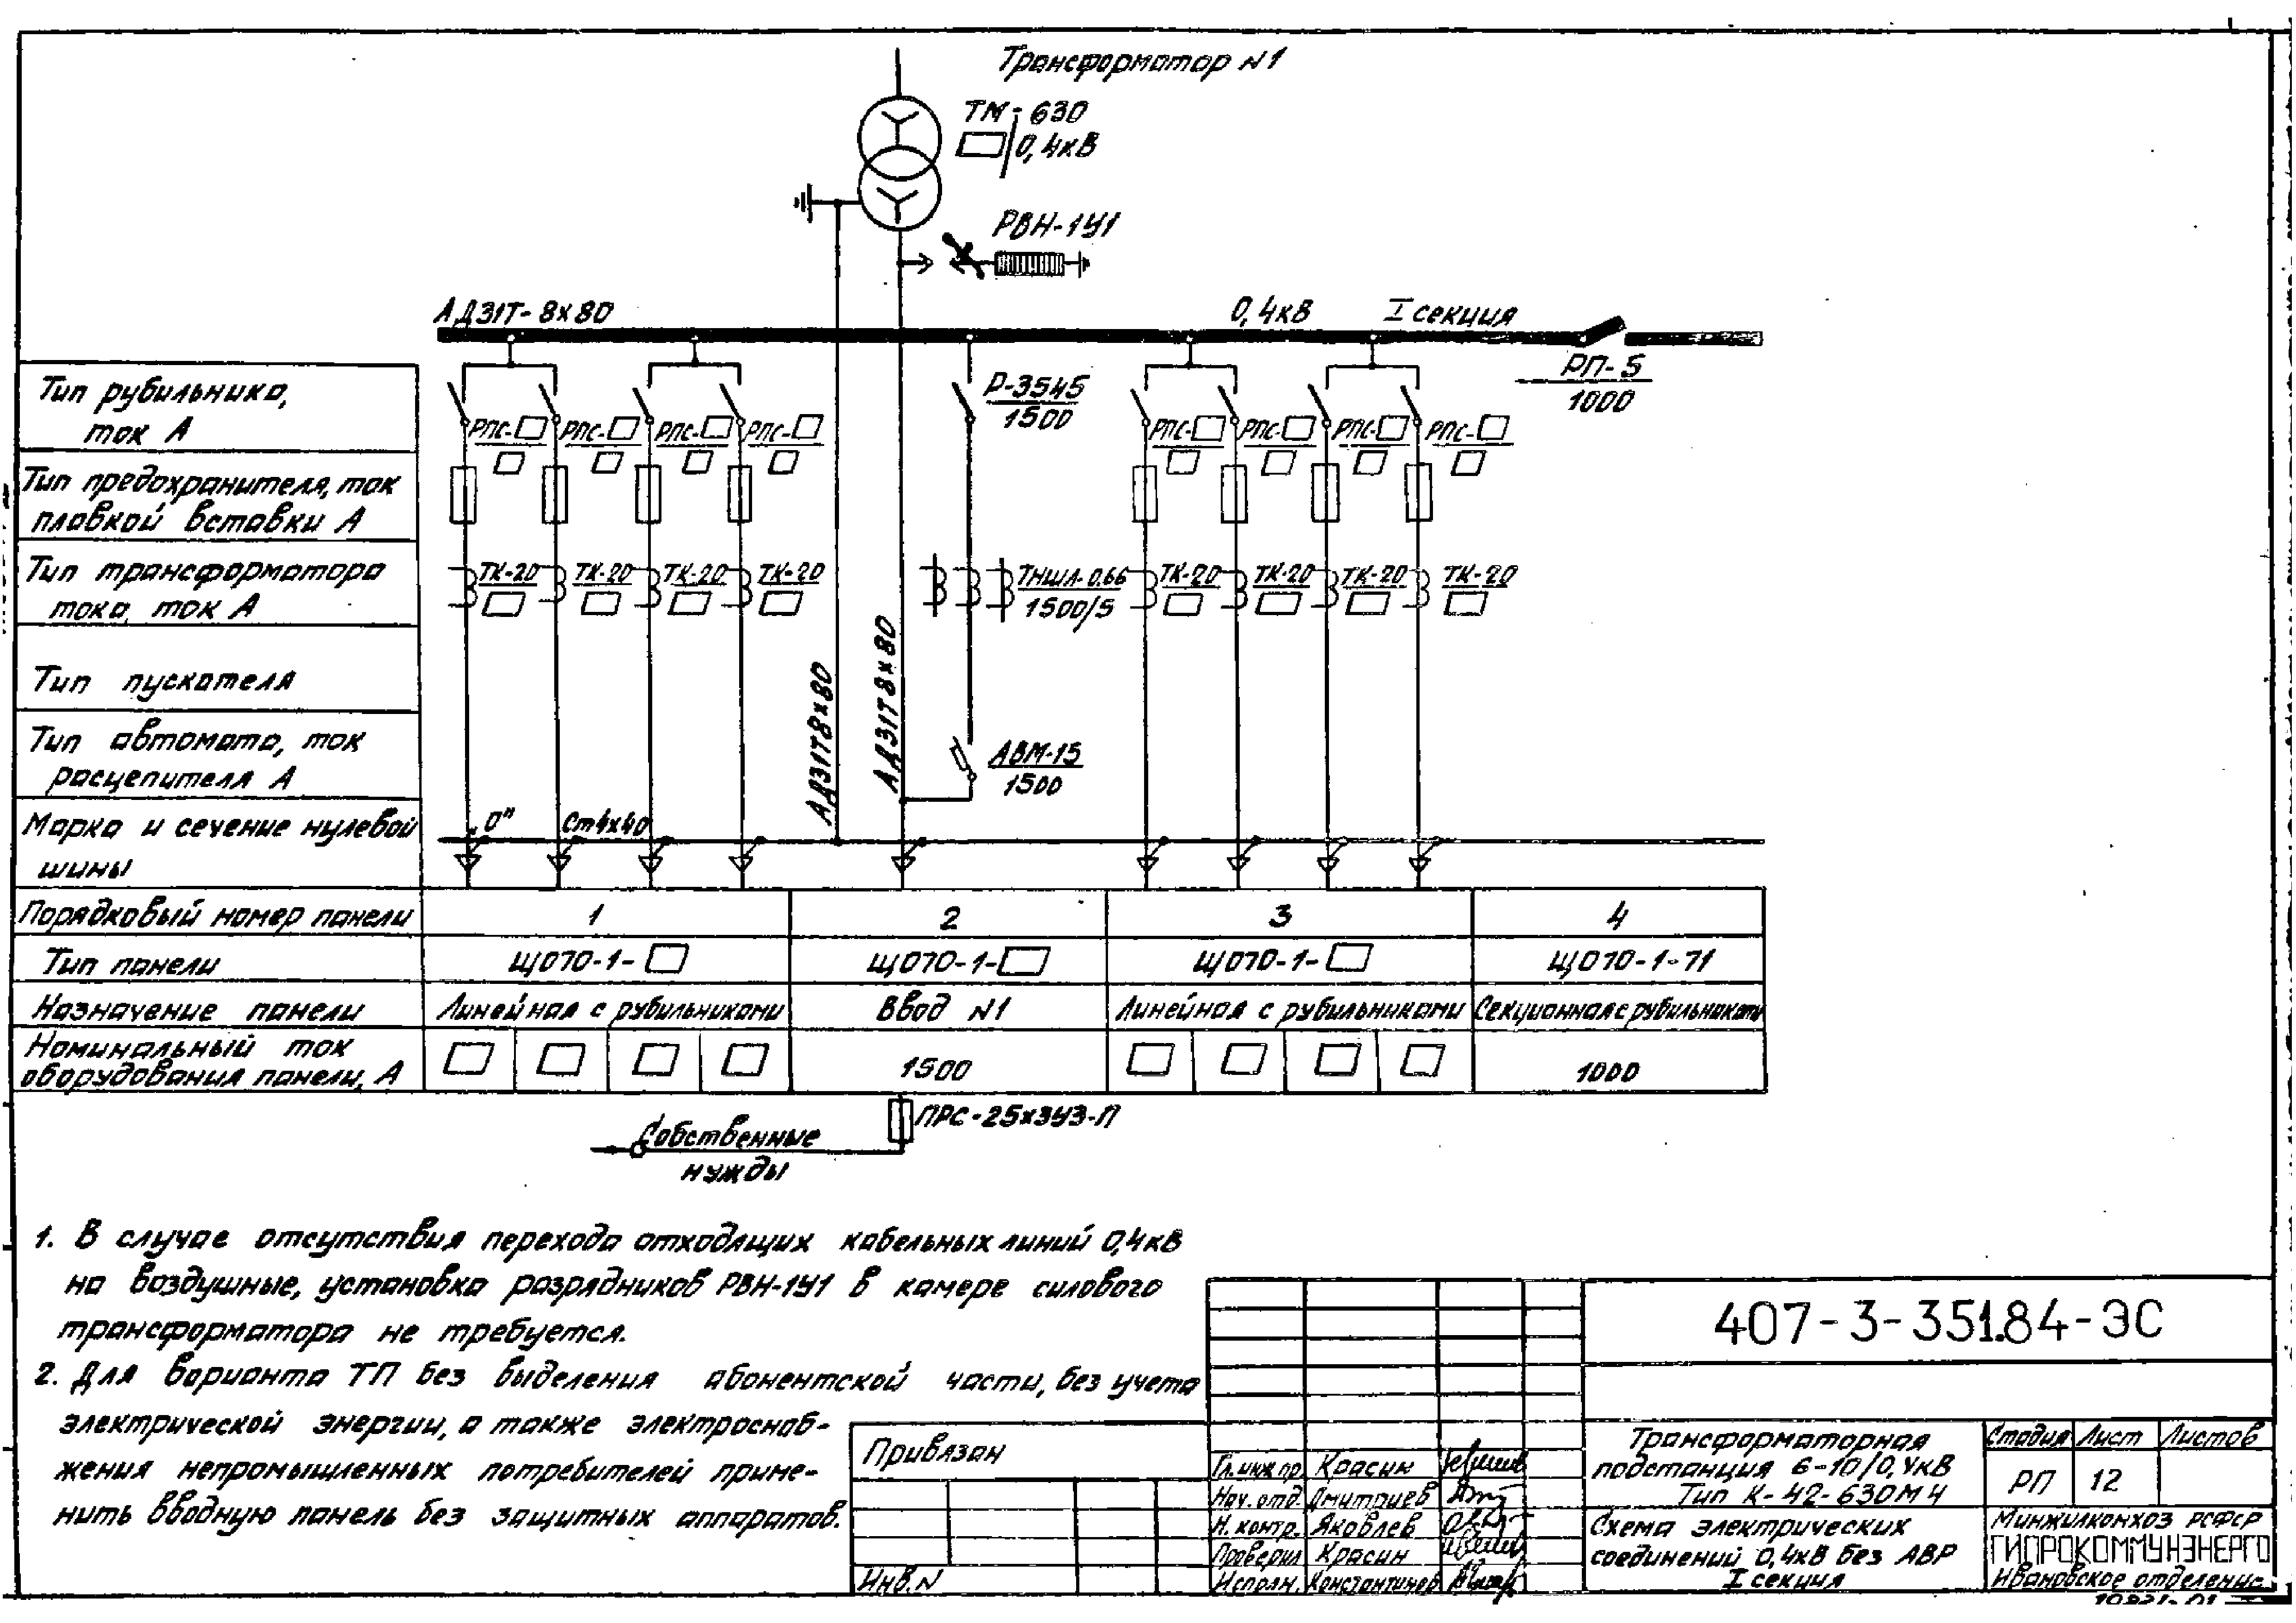 Трансформатор N1
ТМ-630
/0,4кВ
РВН-1У1
АД31Т-8х80
0,4кВ
I секция
РП-5
1000
Тип рубильника,
ток А
Р-3545
1500
РПС- РПС- РПС- РПС- РПС- РПС- РПС- РПС-
Тип предохранителя, ток
плавкой вставки А
Тип трансформатора
тока, ток А
ТК-20 ТК-20 ТК-20 ТК-20
ТНШЛ-0.66
1500/5
ТК-20 ТК-20 ТК-20 ТК-20
Тип пускателя
АД31Т8х80
АД31Т8х80
Тип автомата, ток
расцепителя А
АВМ-15
1500
Марка и сечение нулевой
шины
„0" Ст4х40
Порядковый номер панели 1 2 3 4
Тип панели ЩО70-1- ЩО70-1- ЩО70-1- ЩО70-1-71
Назначение панели Линейная с рубильниками Ввод N1 Линейная с рубильниками Секционная с рубильниками
Номинальный ток
оборудования панели, А
1500
1000
ПРС-25х3У3-П
Собственные
нужды
1. В случае отсутствия перехода отходящих кабельных линий 0,4кВ
на воздушные, установка разрядников РВН-1У1 в камере силового
трансформатора не требуется.
2. Для варианта ТП без выделения абонентской части, без учета
электрической энергии, а также электроснаб-
жения непромышленных потребителей приме-
нить вводную панель без защитных аппаратов.
Привязан
Инв.N
407-3-351.84-ЭС
Гл.инж.пр. Красин
Нач.отд. Дмитриев
Н.контр. Яковлев
Проверил Красин
Исполн. Константинов
Трансформаторная
подстанция 6-10/0,4кВ
Тип К-42-630М4
Стадия Лист Листов
РП 12
Схема электрических
соединений 0,4кВ без АВР
I секция
Минжилкомхоз РСФСР
ГИПРОКОММУНЭНЕРГО
Ивановское отделение